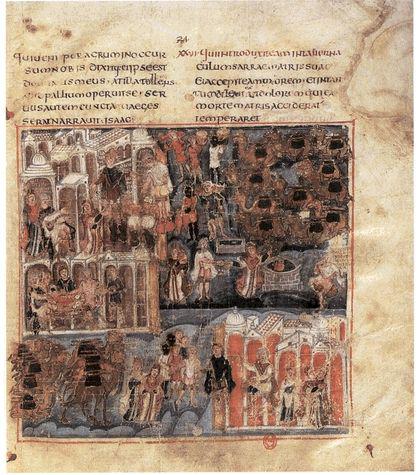 QUIUENIT PER AGRUM IN OCCUR
SUM NOBIS DIXITQ EI IPSE EST
MEUS AT ILLA TOLLENS
PALLIUM OPERUIT SE SER
UUS AUTEM CUNCTA QUAE GES
SERAT NARRAUIT ISAAC
QUI INTRODUXIT EAM IN TABERNA
CULUM SARRAE MATRIS SUAE
ET ACCEPIT EAM UXOREM ET IN TAN
TUM DILEXIT UT DOLOREM QUI EX
MORTE MATRIS ACCIDERAT
TEMPERARET